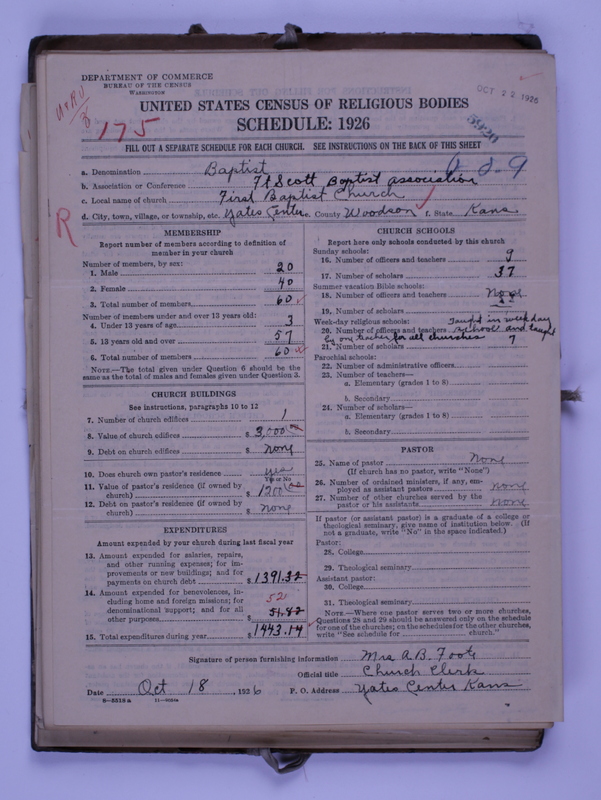 DEPARTMENT OF COMMERCE
BUREAU OF THE CENSUS
WASHINGTON
OCT 22 1926
5920
175
UNITED STATES CENSUS OF RELIGIOUS BODIES
SCHEDULE: 1926
FILL OUT A SEPARATE SCHEDULE FOR EACH CHURCH. SEE INSTRUCTIONS ON THE BACK OF THIS SHEET
a. Denomination Baptist
b. Association or Conference Ft Scott Baptist association
c. Local name of church First Baptist Church
d. City, town, village, or township, etc. Yates Center e. County Woodson f. State Kans.
R
MEMBERSHIP
Report number of members according to definition of member in your church
Number of members, by sex:
1. Male 20
2. Female 40
3. Total number of members 60
Number of members under and over 13 years old:
4. Under 13 years of age 3
5. 13 years old and over 57
6. Total number of members 60
NOTE.—The total given under Question 6 should be the same as the total of males and females given under Question 3.
CHURCH BUILDINGS
See instructions, paragraphs 10 to 12
7. Number of church edifices 1
8. Value of church edifices $ 3,000 00
9. Debt on church edifices $ none
10. Does church own pastor's residence yes
Yes or No
11. Value of pastor's residence (if owned by church) $ 1200 00
12. Debt on pastor's residence (if owned by church) $ none
EXPENDITURES
Amount expended by your church during last fiscal year
13. Amount expended for salaries, repairs, and other running expenses; for improvements or new buildings; and for payments on church debt $ 1391.32
14. Amount expended for benevolences, including home and foreign missions; for denominational support; and for all other purposes $ 51.82
52
15. Total expenditures during year $ 1443.14
CHURCH SCHOOLS
Report here only schools conducted by this church
Sunday schools:
16. Number of officers and teachers 9
17. Number of scholars 37
Summer vacation Bible schools:
18. Number of officers and teachers None
19. Number of scholars
Week-day religious schools: Taught in week day
20. Number of officers and teachers School and taught
by one teacher for all churches
21. Number of scholars 7
Parochial schools:
22. Number of administrative officers
23. Number of teachers—
a. Elementary (grades 1 to 8)
b. Secondary
24. Number of scholars—
a. Elementary (grades 1 to 8)
b. Secondary
PASTOR
25. Name of pastor None
(If church has no pastor, write "None")
26. Number of ordained ministers, if any, employed as assistant pastors none
27. Number of other churches served by the pastor or his assistants none
If pastor (or assistant pastor) is a graduate of a college or theological seminary, give name of institution below. (If not a graduate, write "No" in the space indicated.)
Pastor:
28. College
29. Theological seminary
Assistant pastor:
30. College
31. Theological seminary
NOTE.—Where one pastor serves two or more churches, Questions 28 and 29 should be answered only on the schedule for one of the churches; on the schedules for the other churches, write "See schedule for church."
Signature of person furnishing information Mrs A.B. Foote
Official title Church Clerk
Date Oct 18, 1926 P. O. Address Yates Center Kans
8-5518a